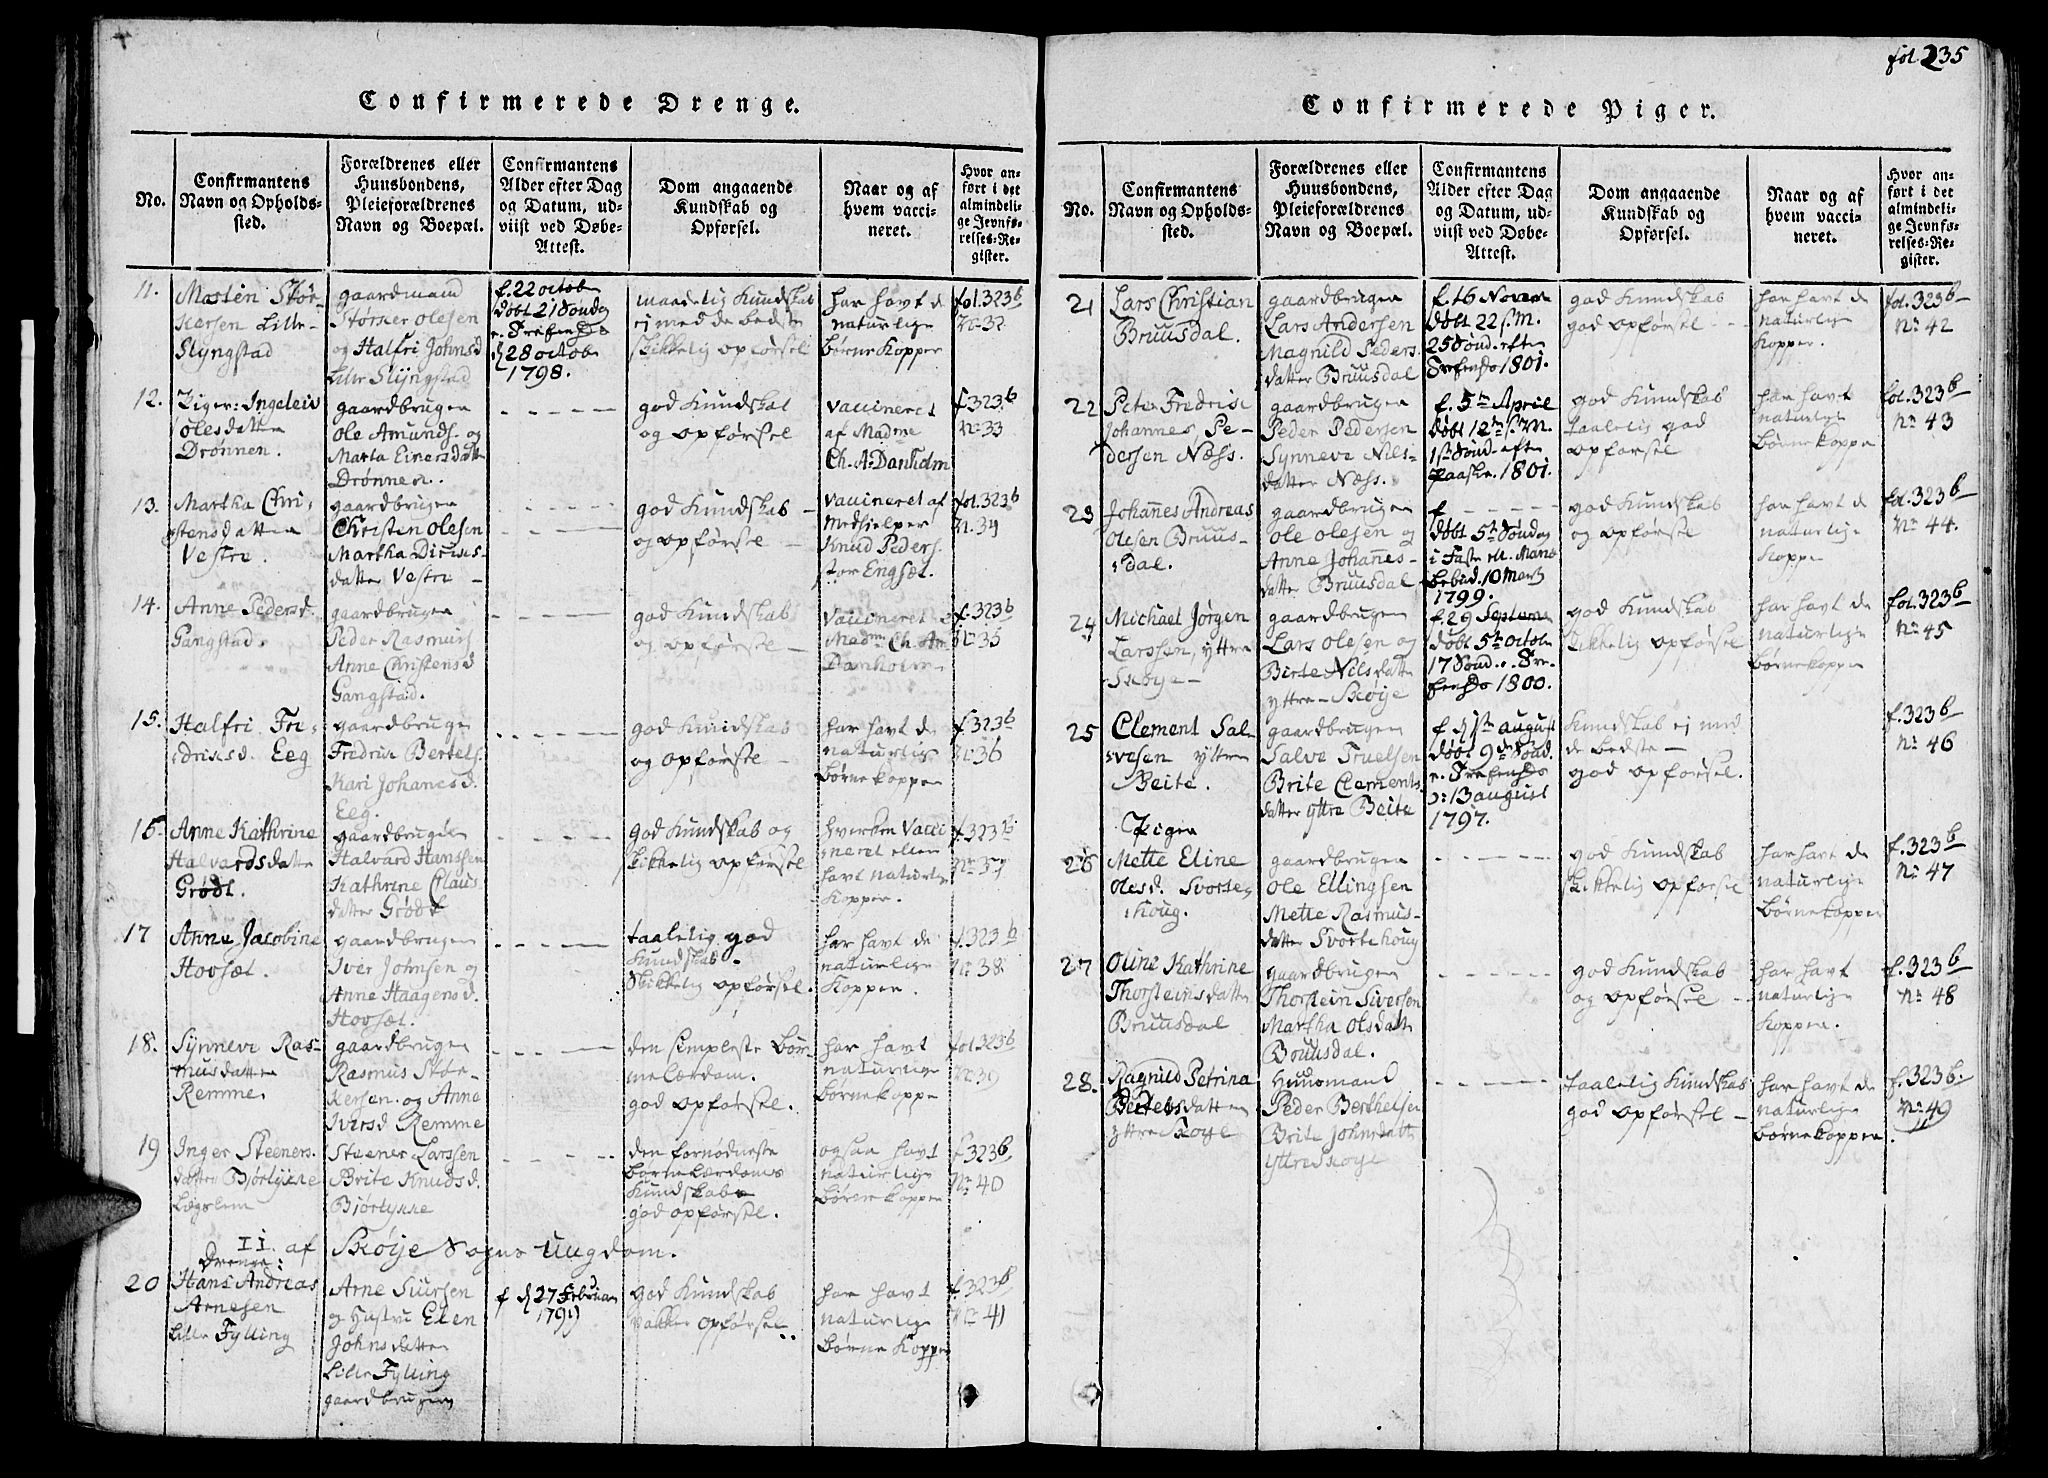 fol. 235
Confirmerede Drenge.
No.
Confirmantens
Navn og Opholds-
sted.
Forældrenes eller
Huusbondens,
Pleieforældrenes
Navn og Boepæl.
Confirmantens
Alder efter Dag
og Datum, ud-
viist ved Døbe-
Attest.
Dom angaaende
Kundskab og
Opførsel.
Naar og af
hvem vacci-
neret.
Hvor an-
ført i det
almindeli-
ge Jevnfø-
relses-Re-
gister.
11.
Lille-
Slyngstad
gaardmand
Størker Olesen
og Halfri Johnsd
Lille Slyngstad
f. 22 octob
døbt 21 Søndag
28 octob
1798.
maadelig Kundskab
ej med de bedste
skikkelig opførsel
har havt de
naturlige
børne Kopper
fol. 323b
No 32
12.
Piger: Ingeleiv
olesdatter
Drønnen.
gaardbruger
Ole Amunds. og
Marta Einersdatt
Drønnen.
god Kundskab
og opførsel
vaccineret
af Madme
Ch. A. Danholm
f. 323b
No 33
13.
Martha Chri-
stensdatter
Vestre.
gaardbruger
Christen Olesen
Martha
datter Vestre
god Kundskab
og opførsel
Vaccineret af
Medhielper
Knud Peders.
stor Engsæt.
fol. 323b
N. 34
14.
Anne Pedersd.
Gangstad.
gaardbruger
Peder Rasmus
Anne Christensd
Gangstad.
god Kundskab
og opførsel
Vaccineret
Madme Ch. An
Danholm
f. 323b
No 35
15.
Halfri Fri-
drisd. Eeg
gaardbruger
Fredric Bertels.
Kari Johanesd.
Eeg.
god Kundskab
og opførsel
har havt de
naturlige
børnekopper
f. 323b
No 36
16.
Anne Kathrine
Halvardsdatter
Grødt.
gaardbruger
Halvard Hanssen
Kathrine Claus
datter Grødt
god Kundskab og
skikkelig opførsel
hverken Vacci
neret eller
havt naturlig
Kopper.
f. 323b
No 37
17
Anne Jacobine
Hovsæt.
gaardbruger
Iver Johnsen og
Anne Haagensd.
Hovsæt.
taalelig god
Kundskab
Skikkelig opførsel.
har havt de
naturlige
Kopper.
f. 323b
No 38
18.
Synneve Ras-
musdatter
Remme.
gaardbruger
Rasmus Stør-
kersen. og Anne
Iversd Remme
den simpleste Bør-
nelærdom.
god opførsel.
har havt
naturlige
børnekoppe
fol. 323b
No 39
19
Inger Steeners.
datter Bjørlykke
Steener Larssen
Brite Knudsd.
Bjørlykke
den fornødneste
børnelærdoms
Kundskab
god opførsel.
ogsaa havt
naturlige
børnekopper
f. 323b
No 40
II. af Skøije Sogns Ungdom.
Drenge:
20
Hans Andreas
Arnesen
Lille Fylling
Arne Siursen
og Hustru Elen
Johnsdatter
Lille Fylling
gaardbruger
f d 27 Februar
1799
god Kundskab
vakker opførsel
har havt
naturlige
børne Kopper
f. 323b
No 41
Confirmerede Piger.
No.
Confirmantens
Navn og Opholds-
sted.
Forældrenes eller
Huusbondens,
Pleieforældrenes
Navn og Boepæl.
Confirmantens
Alder efter Dag
og Datum, ud-
viist ved Døbe-
Attest.
Dom angaaende
Kundskab og
Opførsel.
Naar og af
hvem vacci-
neret.
Hvor an-
ført i det
almindeli-
ge Jevnfø-
relses-Re-
gister.
21
Lars Christian
Bruusdal.
gaardbruger
Lars Andersen
Magnild Peders.
datter Bruusdal
f. 16 Novem
døbt 22 s. M.
25 Sønd. efter
1801.
god Kundskab
god opførsel
har havt de
naturlige
Kopper.
fol. 323b
No 42
22
Peter Fredric
Johannes Pe-
dersen Næss.
gaardbruger
Peder Pedersen
Synneve Nils-
datter Næss.
f. 5te April
døbt 12te s. M.
1st Sønd. efter
Paaske. 1801.
god Kundskab
taalelig god
opførsel
har havt
naturlige
børnekoppe
fol. 323b
No 43
23
Johannes Andreas
Olesen Bruus-
dal.
gaardbruger
Ole Olesen og
Anne Johannes-
datter Bruusdal
f
døbt 5te Søndag
i Faste
bebud. 10 Marts
1799.
god Kundskab
og opførsel
har havt de
naturlige
Koppe
fol. 323b
No 44.
24
Michael Jörgen
Larssen, yttre
Skøye
gaardbruger
Lars Olesen og
Birte Nilsdatter
yttre Skøije
f. 29 Septem
døbt 5te Octob
17 Sønd.
1800.
god Kundskab
skikkelig opførsel
har havt de
naturlige
børnekoppe
fol. 323b
No 45
25
Clement Sal-
vesen yttre
Beite.
gaardbruger
Salve Truelsen
Brite Clements.
datter yttre Beite
f d 1ste august
døbt 9de Sønd.
13 august
1797.
Kundskab ej med
de bedste
god opførsel.
f. 323b
No 46
Piger
26
Mette Eline
Olesd. Svorte-
houg.
gaardbruger
Ole Ellingsen
Mette Rasmus-
datter Svortehoug
god Kundskab
skikkelig opførsel
har havt de
naturlige
børnekopper
f. 323b
No 47
27
Oline Kathrine
Thorsteinsdatter
Bruusdal
gaardbruger
Thorstein Siversen
Martha Olsdatt
Bruusdal.
god Kundskab
og opførsel
har havt
naturlige
Kopper.
f. 323b
No 48
28.
Ragnild Petrina
Bertelsdatter
yttre Skoye
Huusmand
Peder Berthelsen
Brite Johnsdatt
yttre Skoye
taalelig Kundskab
god opførsel
har havt de
naturlige
børnekopper
f. 323b.
No 49